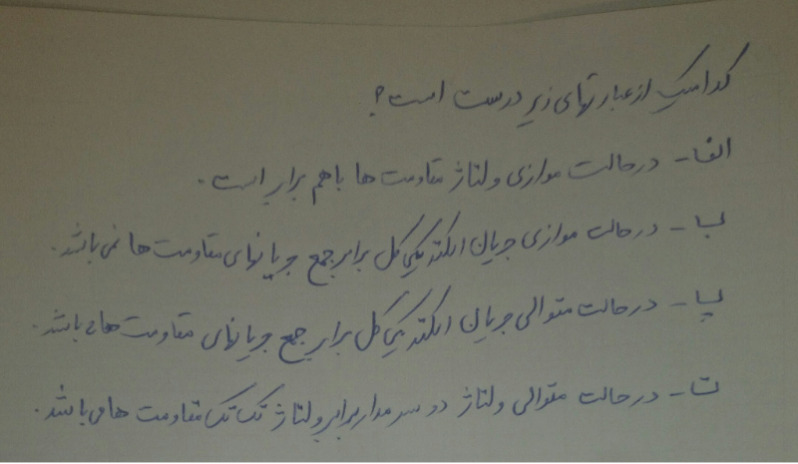 کدامیک از عبارتهای زیر درست است؟
الف - در حالت موازی ولتاژ مقاومت ها باهم برابر است .
ب - در حالت موازی جریان الکتریکی کل برابر جمع جریانهای مقاومت ها نمی باشد .
پ - در حالت متوالی جریان الکتریکی کل برابر جمع جریانهای مقاومت ها می باشد .
ت - در حالت متوالی ولتاژ دو سر مدار برابر ولتاژ تک تک مقاومت ها می باشد .